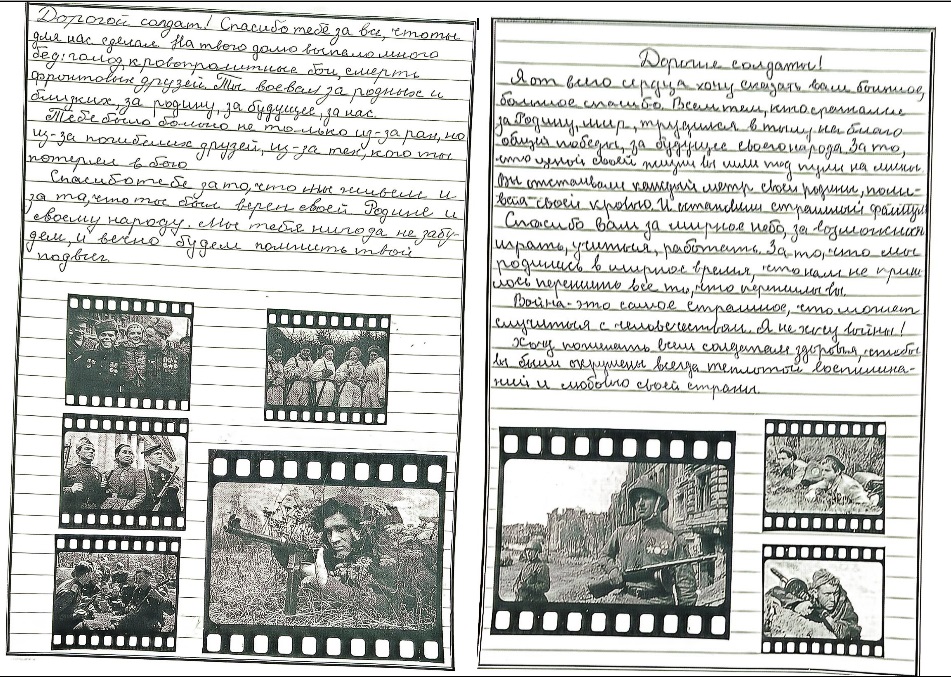 Дорогой солдат! Спасибо тебе за все, что ты
для нас сделал. На твою долю выпало много
бед: голод, кровопролитные бои, смерть
фронтовых друзей. Ты воевал за родных и
близких, за родину, за будущее, за нас.
Тебе было больно не только из-за ран, но
из-за погибших друзей, из-за тех, кого ты
потерял в бою.
Спасибо тебе за то, что мы живем и
за то, что ты был верен своей Родине и
своему народу. Мы тебя нигода не забу-
дем, и вечно будем помнить твой
подвиг.
Дорогие солдаты!
Я от всего сердца хочу сказать вам большое,
большое спасибо. Всем тем, кто сражался
за Родину, мир, трудился в тылу на благо
общей победы, за будущее своего народа. За то,
что ценой своей жизни вы шли под пули на мины.
Вы отстаивали каждый метр своей родины, поли-
вая своей кровью. И остановили страшный фашизм
Спасибо вам за мирное небо, за возможность
играть, учиться, работать. За то, что мы
родились в мирное время, что нам не приш-
лось пережить все то, что пережили вы.
Война - это самое страшное, что может
случиться с человечеством. Я не хочу войны!
Хочу пожелать всем солдатам здоровья, чтобы
вы были окружены всегда теплотой воспомина-
ний и любовью своей страны.